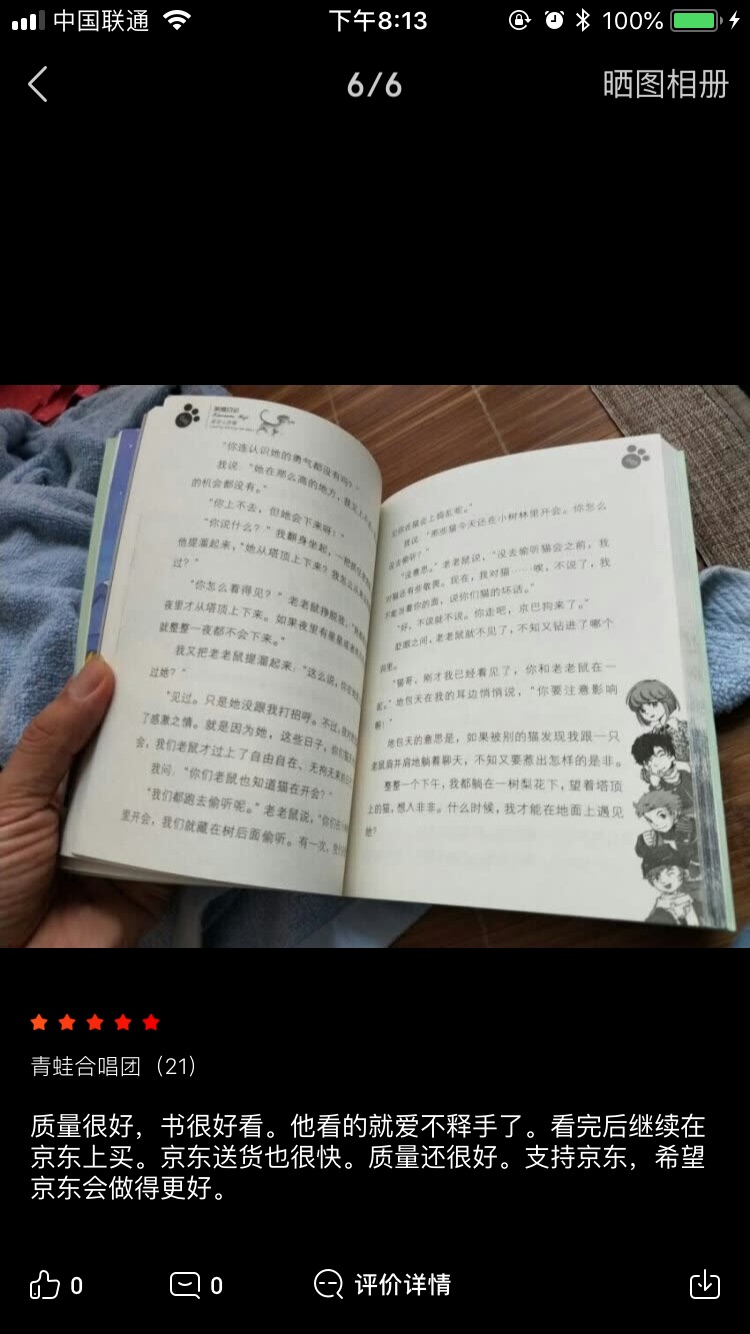 中国联通
下午8:13
100%
6/6
晒图相册
笑猫日记
“你连认识她的勇气都没有吗?”
我说:“她在那么高的地方,我见上
的机会都没有。”
“你上不去,但她会下来呀!”
“你说什么?”我翻身坐起,一把抓住
他提溜起来,“她从塔顶上下来?我怎么从来
过?”
“你怎么看得见?”老老鼠挣脱
夜里才从塔顶上下来。如果夜里有星星或者
就整整一夜都不会下来。”
我又把老老鼠提溜起来:“这么说,你
过她?”
“见过。只是她没跟我打招呼。不过,我对她
了感激之情。就是因为她,这些日子,你们猫
会,我们老鼠才过上了自由自在、无拘无束的日
我问:“你们老鼠也知道猫在开会?”
“我们都跑去偷听呢。”老老鼠说,“你们在
里开会,我们就藏在树后面偷听。有一次,
见你在猫会上捣乱呢。”
我说:“那些猫今天还在小树林里开会。你怎么
没去偷听?”
“没意思。”老老鼠说,“没去偷听猫会之前,我
对猫还有些敬畏。现在,我对猫……唉,不说了,我
不能当着你的面,说你们猫的坏话。”
“好,不说就不说。你走吧,京巴狗来了。”
眨眼之间,老老鼠就不见了,不知又钻进了哪个
洞里。
“猫哥,刚才我已经看见了,你和老老鼠在一
起。”地包天在我的耳边悄悄说,“你要注意影响
啊!”
地包天的意思是,如果被别的猫发现我跟一只
老鼠肩并肩地躺着聊天,不知又要惹出怎样的是非。
整整一个下午,我都躺在一树梨花下,望着塔顶
上的猫,想入非非。什么时候,我才能在地面上遇见
她?
青蛙合唱团(21)
质量很好,书很好看。他看的就爱不释手了。看完后继续在
京东上买。京东送货也很快。质量还很好。支持京东,希望
京东会做得更好。
0
0
评价详情